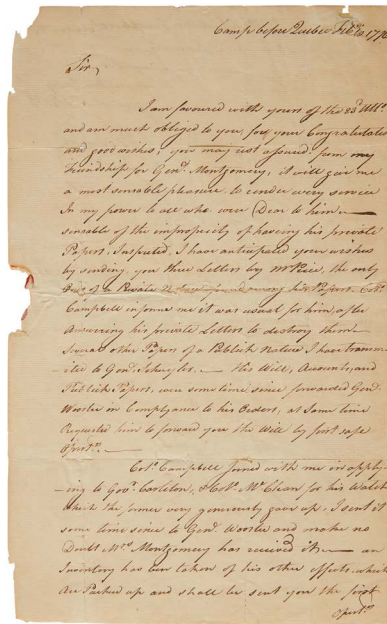 Camp before Quebec Feb. 1776
Sir,
I am favoured with yours of the 23d Ulto.
and am much obliged to you for your Congratulations
and good wishes, you may rest assured from my
friendship for Genl. Montgomery, it will give me
a most sensable pleasure, to render every service
In my power to all who were Dear to him —
sensable of the impropriety of having his private
Papers, Inspected, I have anticipated your wishes
by sending, you three Letters by Mr. Price, the only
of a Private Nature found among his Papers. Colo.
Campbell informs me it was usual for him, after
Answering his private Letters to destroy them —
Several other Papers of a Publick Nature I have transm-
itted to Genl. Schuyler. — His Will, Accounts, and
Publick Papers, were some time since forwarded Genl.
Wooster in Complyance to his Orders, at same time
Requested him to forward you the Will by first safe
Oportty. —
Colo. Campbell joined with me in apply-
ing to Govr. Carleton, & Colo. McClean for his Watch
which the former very generously gave up. I sent it
some time since to Genl. Wooster and make no
Doubt Mrs. Montgomery has received it — an
Inventory has been taken of his other effects, which
Are Packed up and shall be sent you the first
Oportty.